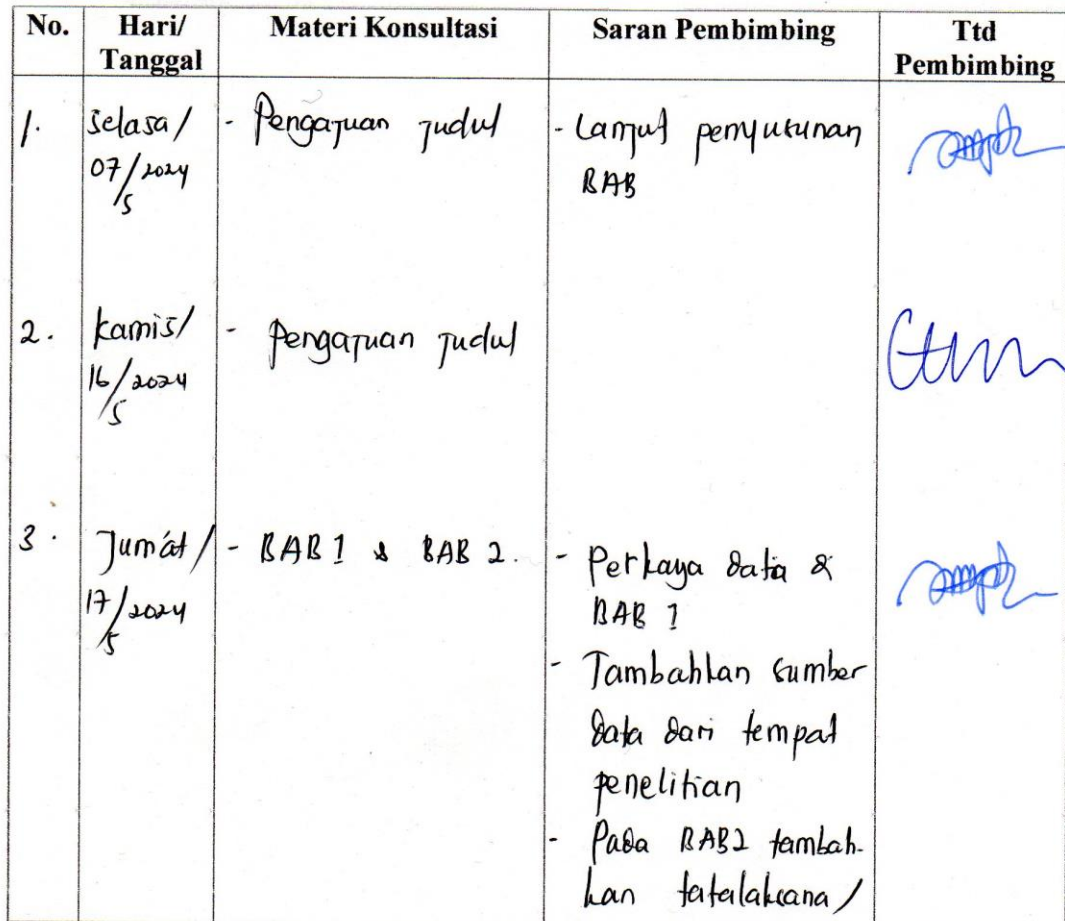 No. Hari/ Tanggal Materi Konsultasi Saran Pembimbing Ttd Pembimbing
1. Selasa/ - Pengajuan judul - Lanjut penyusunan
07/5/2024 BAB
2. Kamis/ - Pengajuan judul
16/5/2024
3. Jum'at/ - BAB 1 & BAB 2. - Perkaya data &
17/5/2024 BAB 1
- Tambahkan sumber
data dari tempat
penelitian
- Pada BAB2 tambah-
kan tatalaksana/